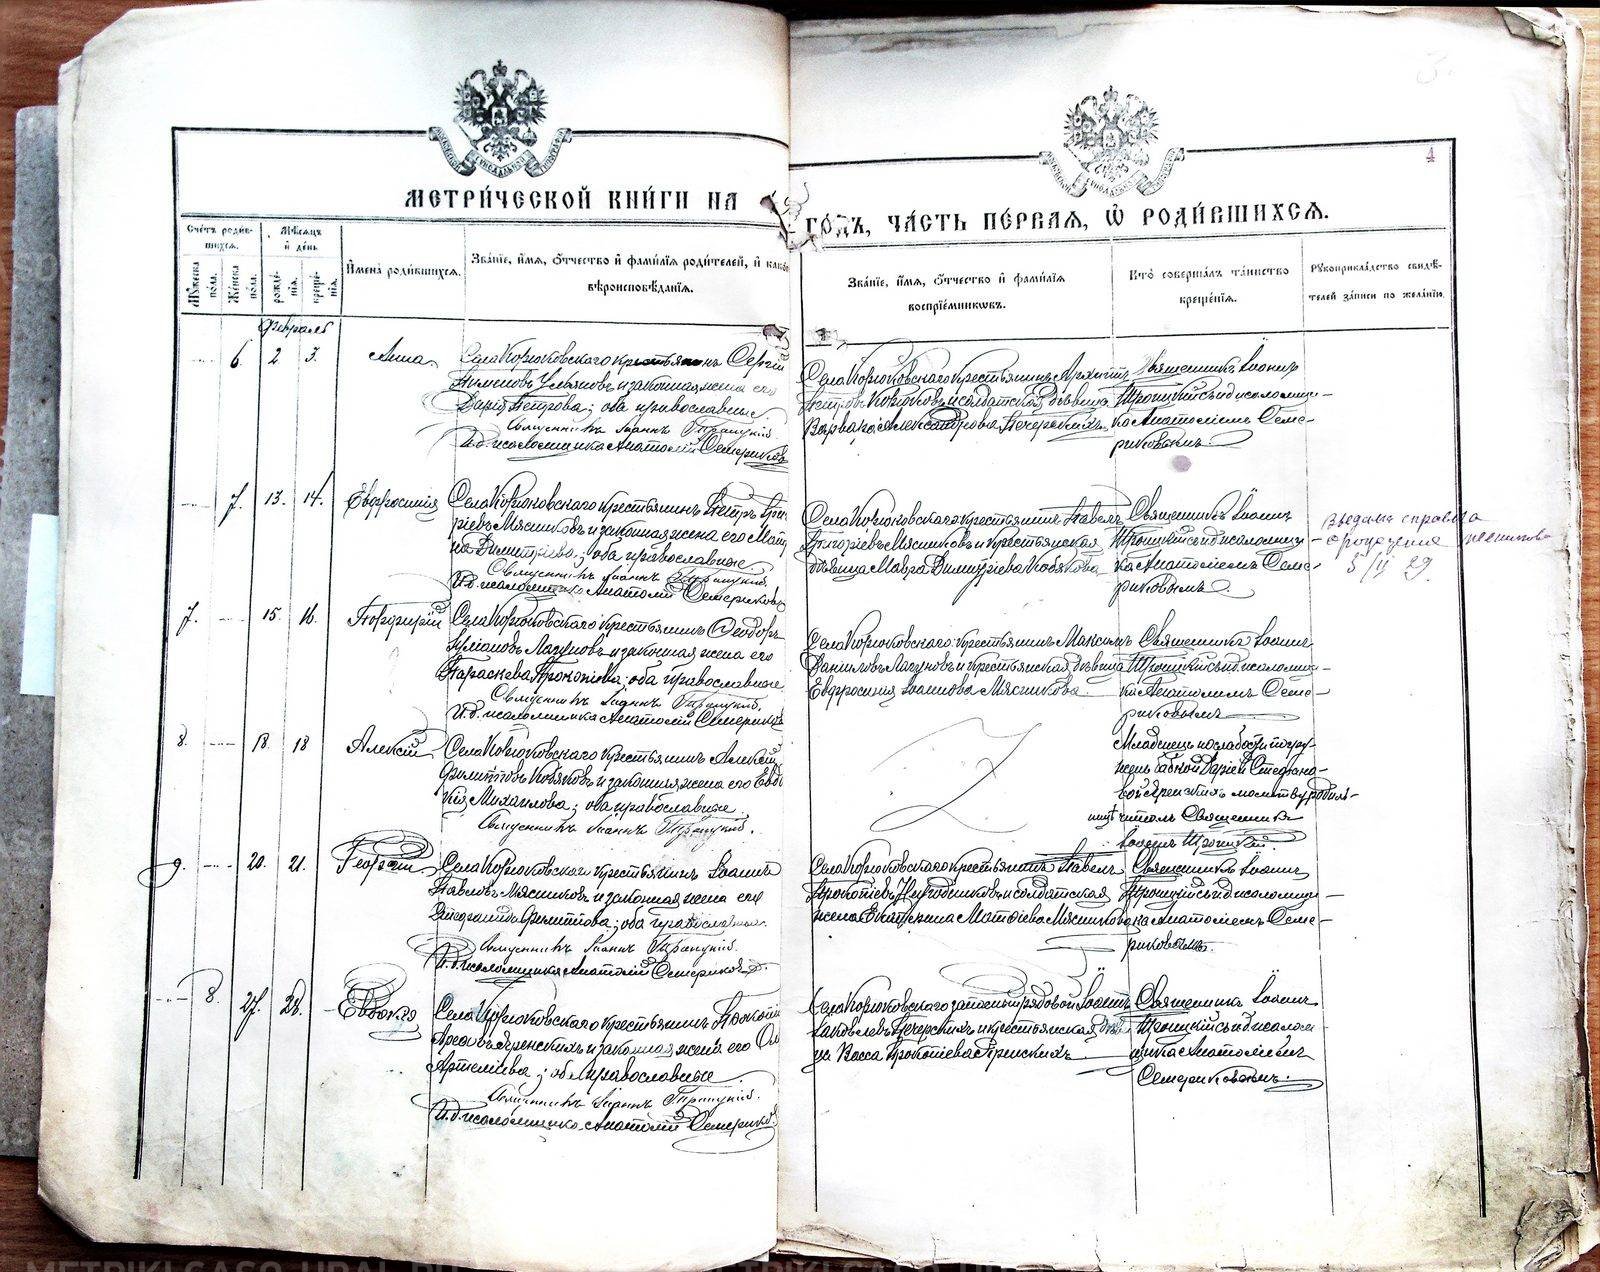 МЕТРИ́ЧЕСКОЙ КНИ́ГИ НА
ГО́ДЪ, ЧА́СТЬ ПЕ́РВАЯ, Ѿ РОДИ́ВШИХСЯ.
4
Сче́тъ роди́в-
шихся.
Му́жеска по́ла.
Же́нска по́ла.
Мѣ́сяцъ и де́нь
рожде́нія.
креще́нія.
И́мена роди́вшихся.
Зва́ніе, и́мя, о́тчество и фами́лія роди́телей, и како́
вѣроисповѣ́данія.
Зва́ніе, и́мя, о́тчество и фами́лія
воспріе́мниковъ.
Кто̀ соверша́лъ та́инство
креще́нія.
Рукоприкла́дство свидѣ́-
телей за́писи по жела́нію.
февраль
6. 2 3. Анна
Села Корюковскаго крестьянинъ Сергій
Пименовъ Ульяновъ и законная жена его
Дарія Петрова; оба православные
Священникъ Іоаннъ Троицкій.
И. д. псаломщика Анатолій Семериковъ
Села Корюковскаго крестьянинъ
Петровъ Корюковъ и солдатская дѣвица
Варвара Александрова Печерскихъ.
Священникъ Іоаннъ
Троицкій съ и. д. псаломщи-
ка Анатоліемъ Семе-
риковымъ
7. 13. 14. Евфросинія
Села Корюковскаго крестьянинъ Петръ Григо
ріевъ Мясниковъ и законная жена его Матр
на Димитріева; оба православные
Священникъ Іоаннъ Троицкій.
И. д. псаломщика Анатолій Семериковъ
Села Корюковскаго крестьянинъ Павелъ
Григоріевъ Мясниковъ и крестьянская
дѣвица Мавра Димитріева Кобякова
Священникъ Іоаннъ
Троицкій съ и. д. псаломщи-
ка Анатоліемъ Семе-
риковымъ.
Выдана справка
о рождении
5/II 29
7. 15. 16. Порфирій
Села Корюковскаго крестьянинъ Ѳеодоръ
Лагуновъ и законная жена его
Параскева Прокопіева; оба православные
Священникъ Іоаннъ Троицкій.
И. д. псаломщика Анатолій Семериковъ
Села Корюковскаго крестьянинъ Максимъ
Даниловъ Лагуновъ и крестьянская дѣвица
Евфросинія Іоаннова Мясникова.
Священникъ Іоаннъ
Троицкій съ и. д. псаломщи-
ка Анатоліемъ Семе-
риковымъ
8. 18. 18 Алексій
Села Корюковскаго крестьянинъ Алексій
Филипповъ Кобяковъ и законная жена его Евдо
кія Михаилова; оба православные.
Священникъ Іоаннъ Троицкій.
Младенецъ по слабости погру-
женъ бабкой Даріей Стефано-
вой молитву родиль-
ницѣ читалъ Священникъ
Іоаннъ Троицкій
9. 20. 21. Георгій
Села Корюковскаго крестьянинъ Іоаннъ
Павловъ Мясниковъ и законная жена его
Филиппова; оба православные.
Священникъ Іоаннъ Троицкій.
И. д. псаломщика Анатолій Семериковъ.
Села Корюковскаго крестьянинъ Павелъ
Прокопіевъ и солдатская
жена Екатерина Матѳіева Мясникова
Священникъ Іоаннъ
Троицкій съ и. д. псаломщи-
ка Анатоліемъ Семе-
риковымъ.
8. 27. 28. Евдокія
Села Корюковскаго крестьянинъ
и законная жена его
Артеміева; оба православные
Священникъ Іоаннъ Троицкій.
И. д. псаломщика Анатолій Семериков
Села Корюковскаго запасный рядовой Іоаннъ
Іаковлевъ Печерскихъ и крестьянская дѣви
ца Васса Прокопіева
Священникъ Іоаннъ
Троицкій съ и. д. псаломщика
Анатоліемъ
Семериковымъ.